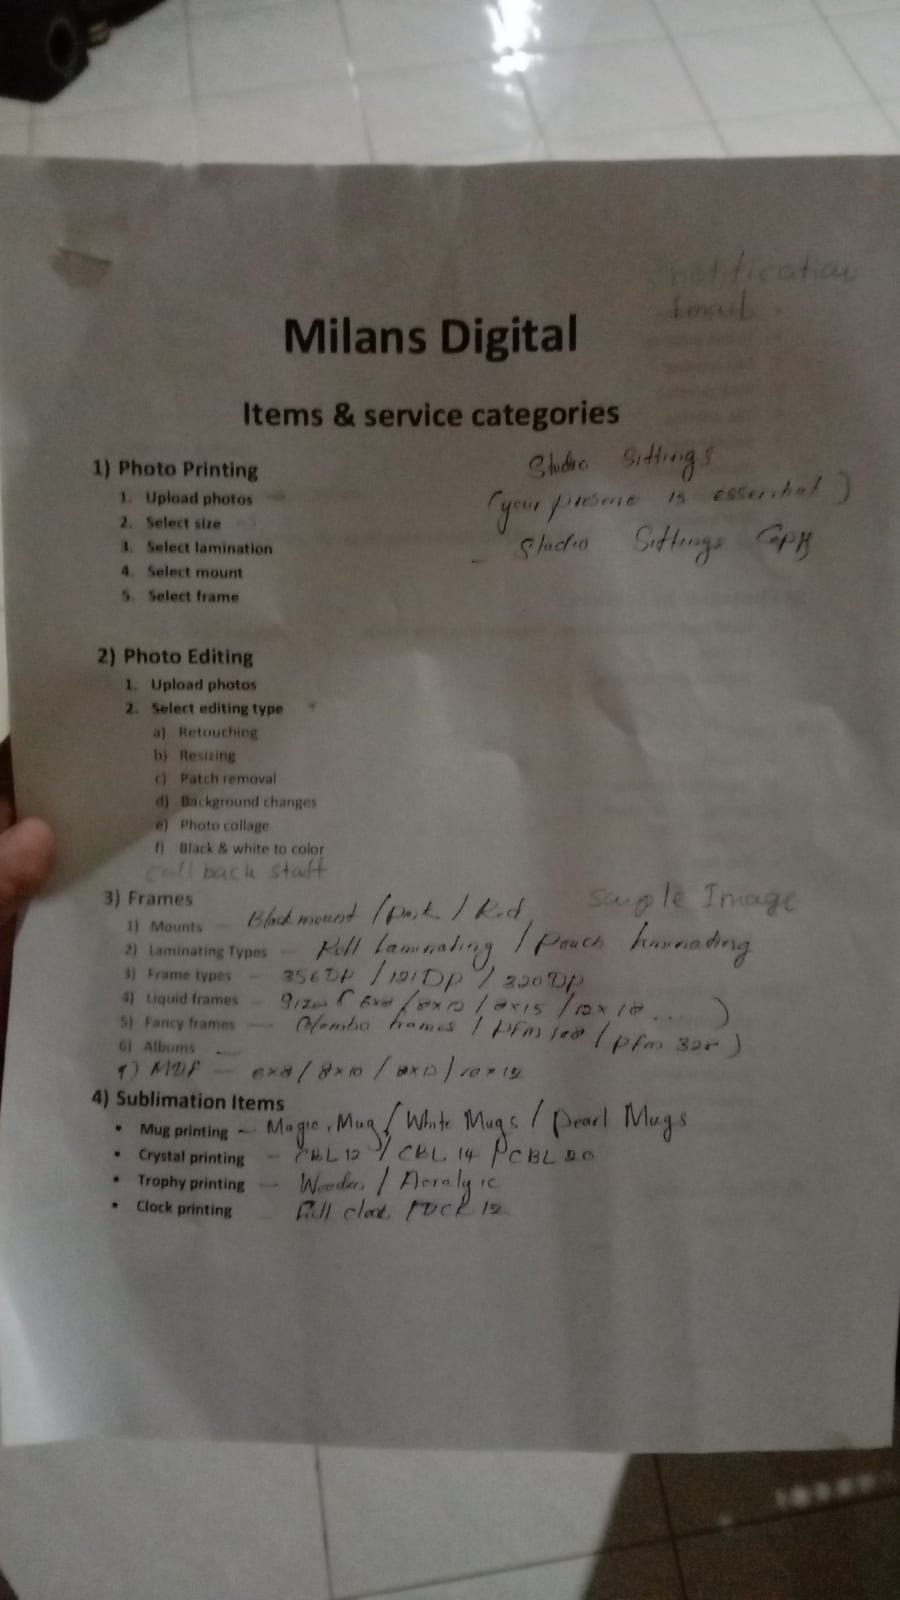 notification
Email
Milans Digital
Items & service categories
1) Photo Printing
1. Upload photos
2. Select size
3. Select lamination
4. Select mount
5. Select frame
Studio Sittings
(your presene is essential)
- Studio Sittings Copy
2) Photo Editing
1. Upload photos
2. Select editing type
a) Retouching
b) Resizing
c) Patch removal
d) Background changes
e) Photo collage
f) Black & white to color
call back staff
3) Frames
Sample Image
1) Mounts - Black mount / / Red
2) Laminating Types - Roll laminating / Pouch laminating
3) Frame types - 356 DP / 121 DP / 320 DP
4) Liquid frames - Sizes ( 6x8 / 8x12 / 8x15 / 12x18 ... )
5) Fancy frames - frames / Pfm 108 / Pfm )
6) Albums -
7) MDF - 6x8 / 8x10 / 8x12 / 10x12
4) Sublimation Items
• Mug printing - Magic Mug / White Mugs / Pearl Mugs
• Crystal printing - CBL 12 / CBL 14 / CBL 20
• Trophy printing - Wooden / Acralyic
• Clock printing Full clock / DCK 12